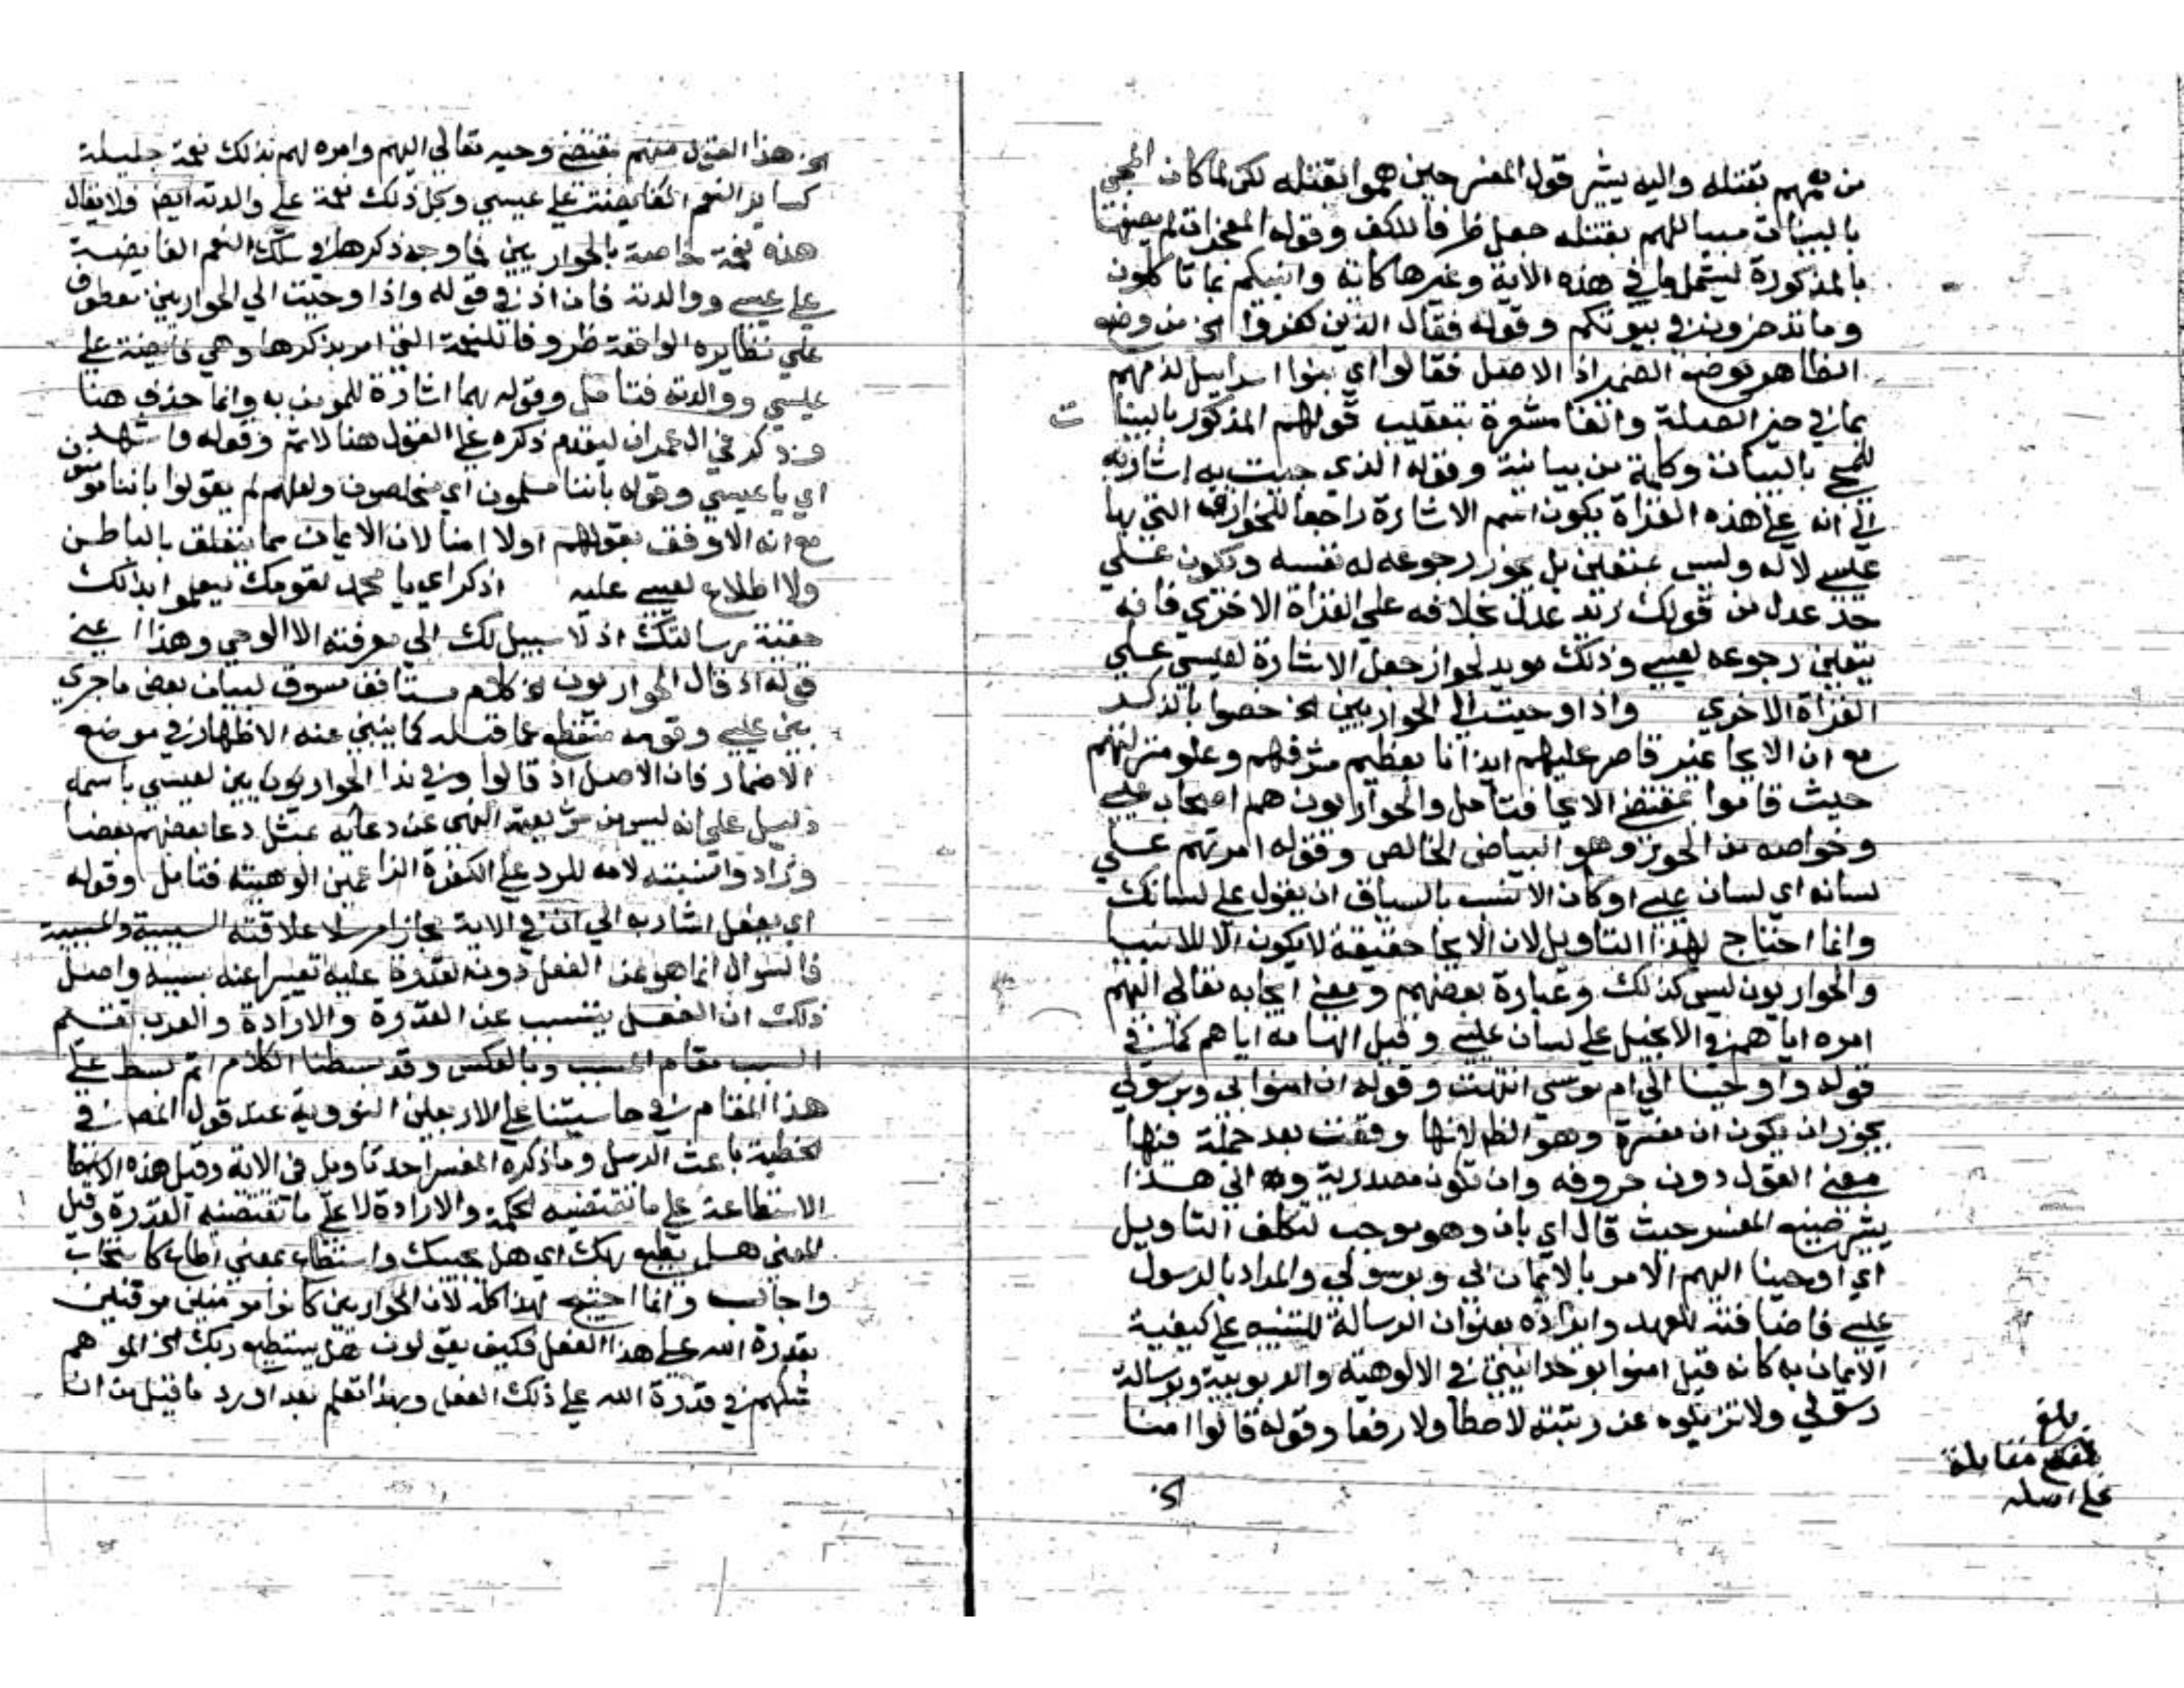 من همهم بقتله واليه يشير قول المفسر حين هموا بقتله لكن لما كان المجي
بالبينات سببا لهم بقتله جعل ظرفا للكف وقوله المعجزات لم يصفها
بالمذكورة ليشمل ما في هذه الاية وغيرها كاية وانبيكم بما تاكلون
وما تدخرون في بيوتكم وقوله فقال الذين كفروا الخ من وضع
الظاهر موضع الضمير اذ الاصل فقالوا اي بنوا اسراييل لذمهم
بما في حيز الصلة والفا مشعرة بتعقيب قولهم المذكور بالبينا ت
للمجي بالبينات وكلمة من بيانية وقوله الذي جيت به اشار به
الي انه علي هذه القراة يكون اسم الاشارة راجعا للخوارق التي بها
عيسي لا له وليس بمتعين بل يجوز رجوعه له نفسه ويكون علي
حد عدل من قولك زيد عدل بخلافه علي القراة الاخري فانه
يتعين رجوعه لعيسي وذلك مويد لجواز جعل الاشارة لعيسي علي
القراة الاخري واذ اوحيت الي الحواريين الخ خصوا بالذكر
مع ان الايحا غير قاصر عليهم ايذانا بعظيم شرفهم وعلو منزلتهم
حيث قاموا بمقتضي الايحا فتامل والحواريون هم اصحاب عيسي
وخواصه من الحور وهو البياض الخالص وقوله امرتهم علي
لسانه اي لسان عيسي وكان الانسب بالسياق ان يقول علي لسانك
وانما احتاج لهذا التاويل لان الايحا حقيقة لا يكون الا للانبيا
والحواريون ليس كذلك وعبارة بعضهم ومعني ايحايه تعالي اليهم
امره اياهم في الانجيل علي لسان عيسي وقيل الهامه اياهم كما في
قوله واوحينا الي ام موسي انتهت وقوله ان امنوا بي وبرسولي
يجوز ان يكون ان مفسرة وهو الظ لانها وقعت بعد جملة فيها
معني القول دون حروفه وان تكون مصدرية والي هذا
يشير صنيع المفسر حيث قال اي بان وهو موجب لتكلف التاويل
اي اوحينا اليهم الامر بالايمان بي وبرسولي والمراد بالرسول
عيسي فاضافته للعهد وايراده بعنوان الرسالة للتنبيه علي كيفية
الايمان به كانه قيل امنوا بوحدانيتي في الالوهية والربوبية وبرسالة
رسولي ولا تزيلوه عن رتبته لا حطا ولا رفعا وقوله قالوا امنا
الخ
بلغ
مقابلة
علي اصله
الخ هذا القول منهم بمقتضي وحيه تعالي اليهم وامره لهم بذلك نعمة جليلة
كساير النعم الفايضة علي عيسي وكل ذلك نعمة علي والدته ايضا فلا يقال
هذه نعمة خاصة بالحواريين فما وجه ذكرها في سلك النعم الفايضة
علي عيسي ووالدته فان اذ في قوله واذ اوحيت الي الحواريين معطوف
علي نظايره الواقعة ظروفا للنعمة التي امر بذكرها وهي فايضة علي
عيسي ووالدته فتامل وقوله بهما اشارة للمومن به وانما حذف هنا
وذكر في ال عمران لتقدم ذكره علي القول هنا لا ثم وقوله واشهد
اي يا عيسي وقوله باننا مسلمون اي مخلصون ولعلهم لم يقولوا باننا مومنون
مع انه الاوفق بقولهم اولا امنا لان الايمان مما يتعلق بالباطن
ولا اطلاع لعيسي عليه اذكر اي يا محمد لقومك ليعلموا بذلك
حقية رسالتك اذ لا سبيل لك الي معرفته الا الوحي وهذا اعني
قوله اذ قال الحواريون الخ كلام مستانف مسوق لبيان بعض ما جري
بين عيسي وقومه منقطع عما قبله كما ينبي عنه الاظهار في موضع
الاضمار فان الاصل اذ قالوا وفي ندا الحواريون لعيسي باسمه
دليل علي انه ليس من شريعته النهي عن دعايه بمثل دعا بعضهم بعضا
وزادوا نسبته لامه للرد علي الكفرة الزاعمين الوهيته فتامل وقوله
اي يفعل اشار به الي ان في الاية مجازا مرسلا علاقته السببية والمسببية
فالسوال انما هو عن الفعل دون القدرة عليه تعبيرا عنه بسببه واصل
ذلك ان الفعل يتسبب عن القدرة والارادة والعرب تقيم
السبب مقام المسبب وبالعكس وقد بسطنا الكلام اتم بسط علي
هذا المقام في حاشيتنا علي الاربعين النووية عند قول المصنف في
الخطبة باعث الرسل وما ذكره المفسر احد تاويل في الاية وقيل هذه
الاستطاعة علي ما تقتضيه الحكمة والارادة لا علي ما تقتضيه القدرة وقيل
المعني هل يطيع ربك اي هل يجيبك واستطاع بمعني اطاع كاستجاب
واجاب وانما احتيج لهذا كله لان الحواريين كانوا مومنين موقنين
بقدرة الله علي هذا الفعل فكيف يقولون هل يستطيع ربك الخ الموهم
شكهم في قدرة الله علي ذلك الفعل وبهذا تعلم بعد او رد ما قيل من ان